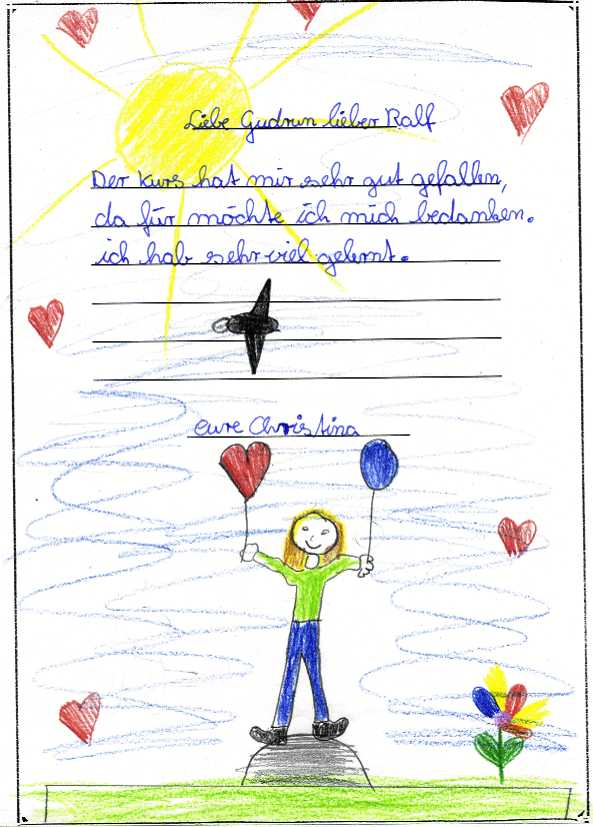 Liebe Gudrun lieber Ralf
Der Kurs hat mir sehr gut gefallen,
da für möchte ich mich bedanken.
ich hab sehr viel gelernt.
eure Christina